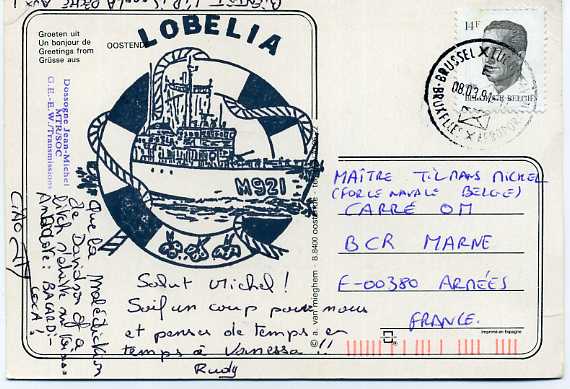 Groeten uit
Un bonjour de
Greetings from
Grüsse aus
OOSTENDE
LOBELIA
M921
Dossogne Jean-Michel
MTR/SOC
G.E.-E.W./Transmissions
Salut Michel!
un coup pour nous
et penses de temps en
temps à Vanessa!!
Rudy
que la Malédiction
de
Antidote: BACARDI-
COCA!
CIAO
14F
BELGIQUE-BELGIË
BRUSSEL X
BRUXELLES X
© a. van mieghem - B.8400 oostende
MAÎTRE TILMANS MICHEL
(FORCE NAVALE BELGE)
CARRÉ OM
BCR MARNE
F-00380 ARMÉES
FRANCE.
Imprimé en Espagne